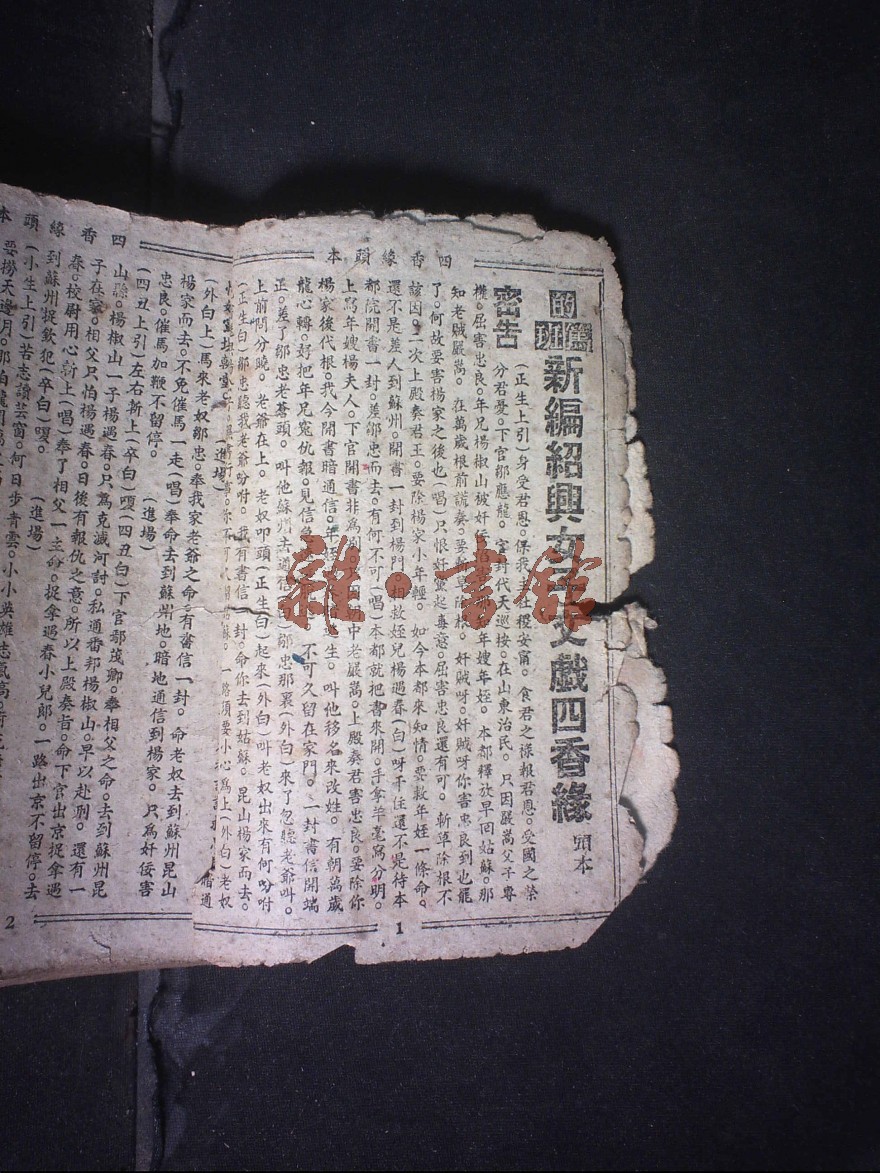 四香緣頭本
的班
新編紹興女子文戲四香緣
頭本
密告
(正生上引)身受君恩。保我主社稷安甯。食君之祿報君恩。受國之榮
分君憂。下官鄒應龍。官封代天巡按。在山東治民。只因嚴嵩父子專
權。屈害忠良。年兄楊椒山被奸佞年嫂年姪。本都釋放早回姑蘇。那
知老賊嚴嵩。在萬歲根前謊奏。要奸賊呀。奸賊呀你害忠良到也罷
了。何故要害楊家之後也(唱)只恨奸黨起毒意。屈害忠良還有可。斬草除根不
該因。二次上殿奏君王。要除楊家小年輕。如今本都來知情。要救年姪一條命。
還不是差人到蘇州。開書一封到楊門。相救姪兒楊過春(白)呀干住還不是待本
都院開書一封。差鄒忠而去。有何不可(唱)本都就把書來開。手拿羊毫寫分明。
上寫年嫂楊夫人。下官開書非爲別。中老嚴嵩。上殿奏君害忠良。要除你
楊家後代根。我今開書暗通信。年姪生。叫他移名來改姓。有朝萬歲
龍心轉。好把年兄寃仇報。見信不可久留在家門。一封書信開端
正。差了鄒忠老蒼頭。叫他蘇州去通信(白)鄒忠那裏(外白)來了忽聽老爺叫。
上前問分曉。老爺在上。老奴叩頭(正生白)起來(外白)叫老奴出來有何吩咐
(正生白)鄒忠聽我老爺吩咐。我有書信一封。命你去到姑蘇。昆山楊家而去。
一路須要小心爲上(外白)老奴
(進場)
(外白上)馬來老奴鄒忠。奉我家老爺之命。有書信一封。命老奴去到蘇州昆山
楊家而去。不免催馬一走(唱)奉命去到蘇州地。暗地通信到楊家。只爲奸佞害
忠良。催馬加鞭不留停。(進場)
(四丑上引)左右斬上(卒白)嗄(四丑白)下官鄢茂卿。奉相父之命。去到蘇州昆
山縣。楊椒山一子楊過春。只爲克減河討。私通番邦楊椒山。早以赴刑。還有一
子在家。相父只怕楊過春。日後有報仇之意。所以上殿奏旨。命下官出京捉拿過
春。校尉用心斬上(唱)奉了相父一主命。捉拿過春小兒郎。一路出京不留停。去
到蘇州捉欽犯(卒白)嗄。(進場)
(小生上引)苦志讀芸窗。何日步青雲。小小英雄志氣高。
要撈天邊月。那怕
四香緣頭本
1
2
雜·書館